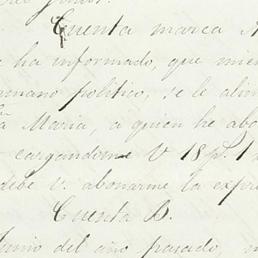 Cuenta marca
ha informado, que mien
mano político, se le alim
Maria, a quien he abo
cargandome V 18 p.
debe V. abonarme la expre
Cuenta B.
Junio del año pasado,